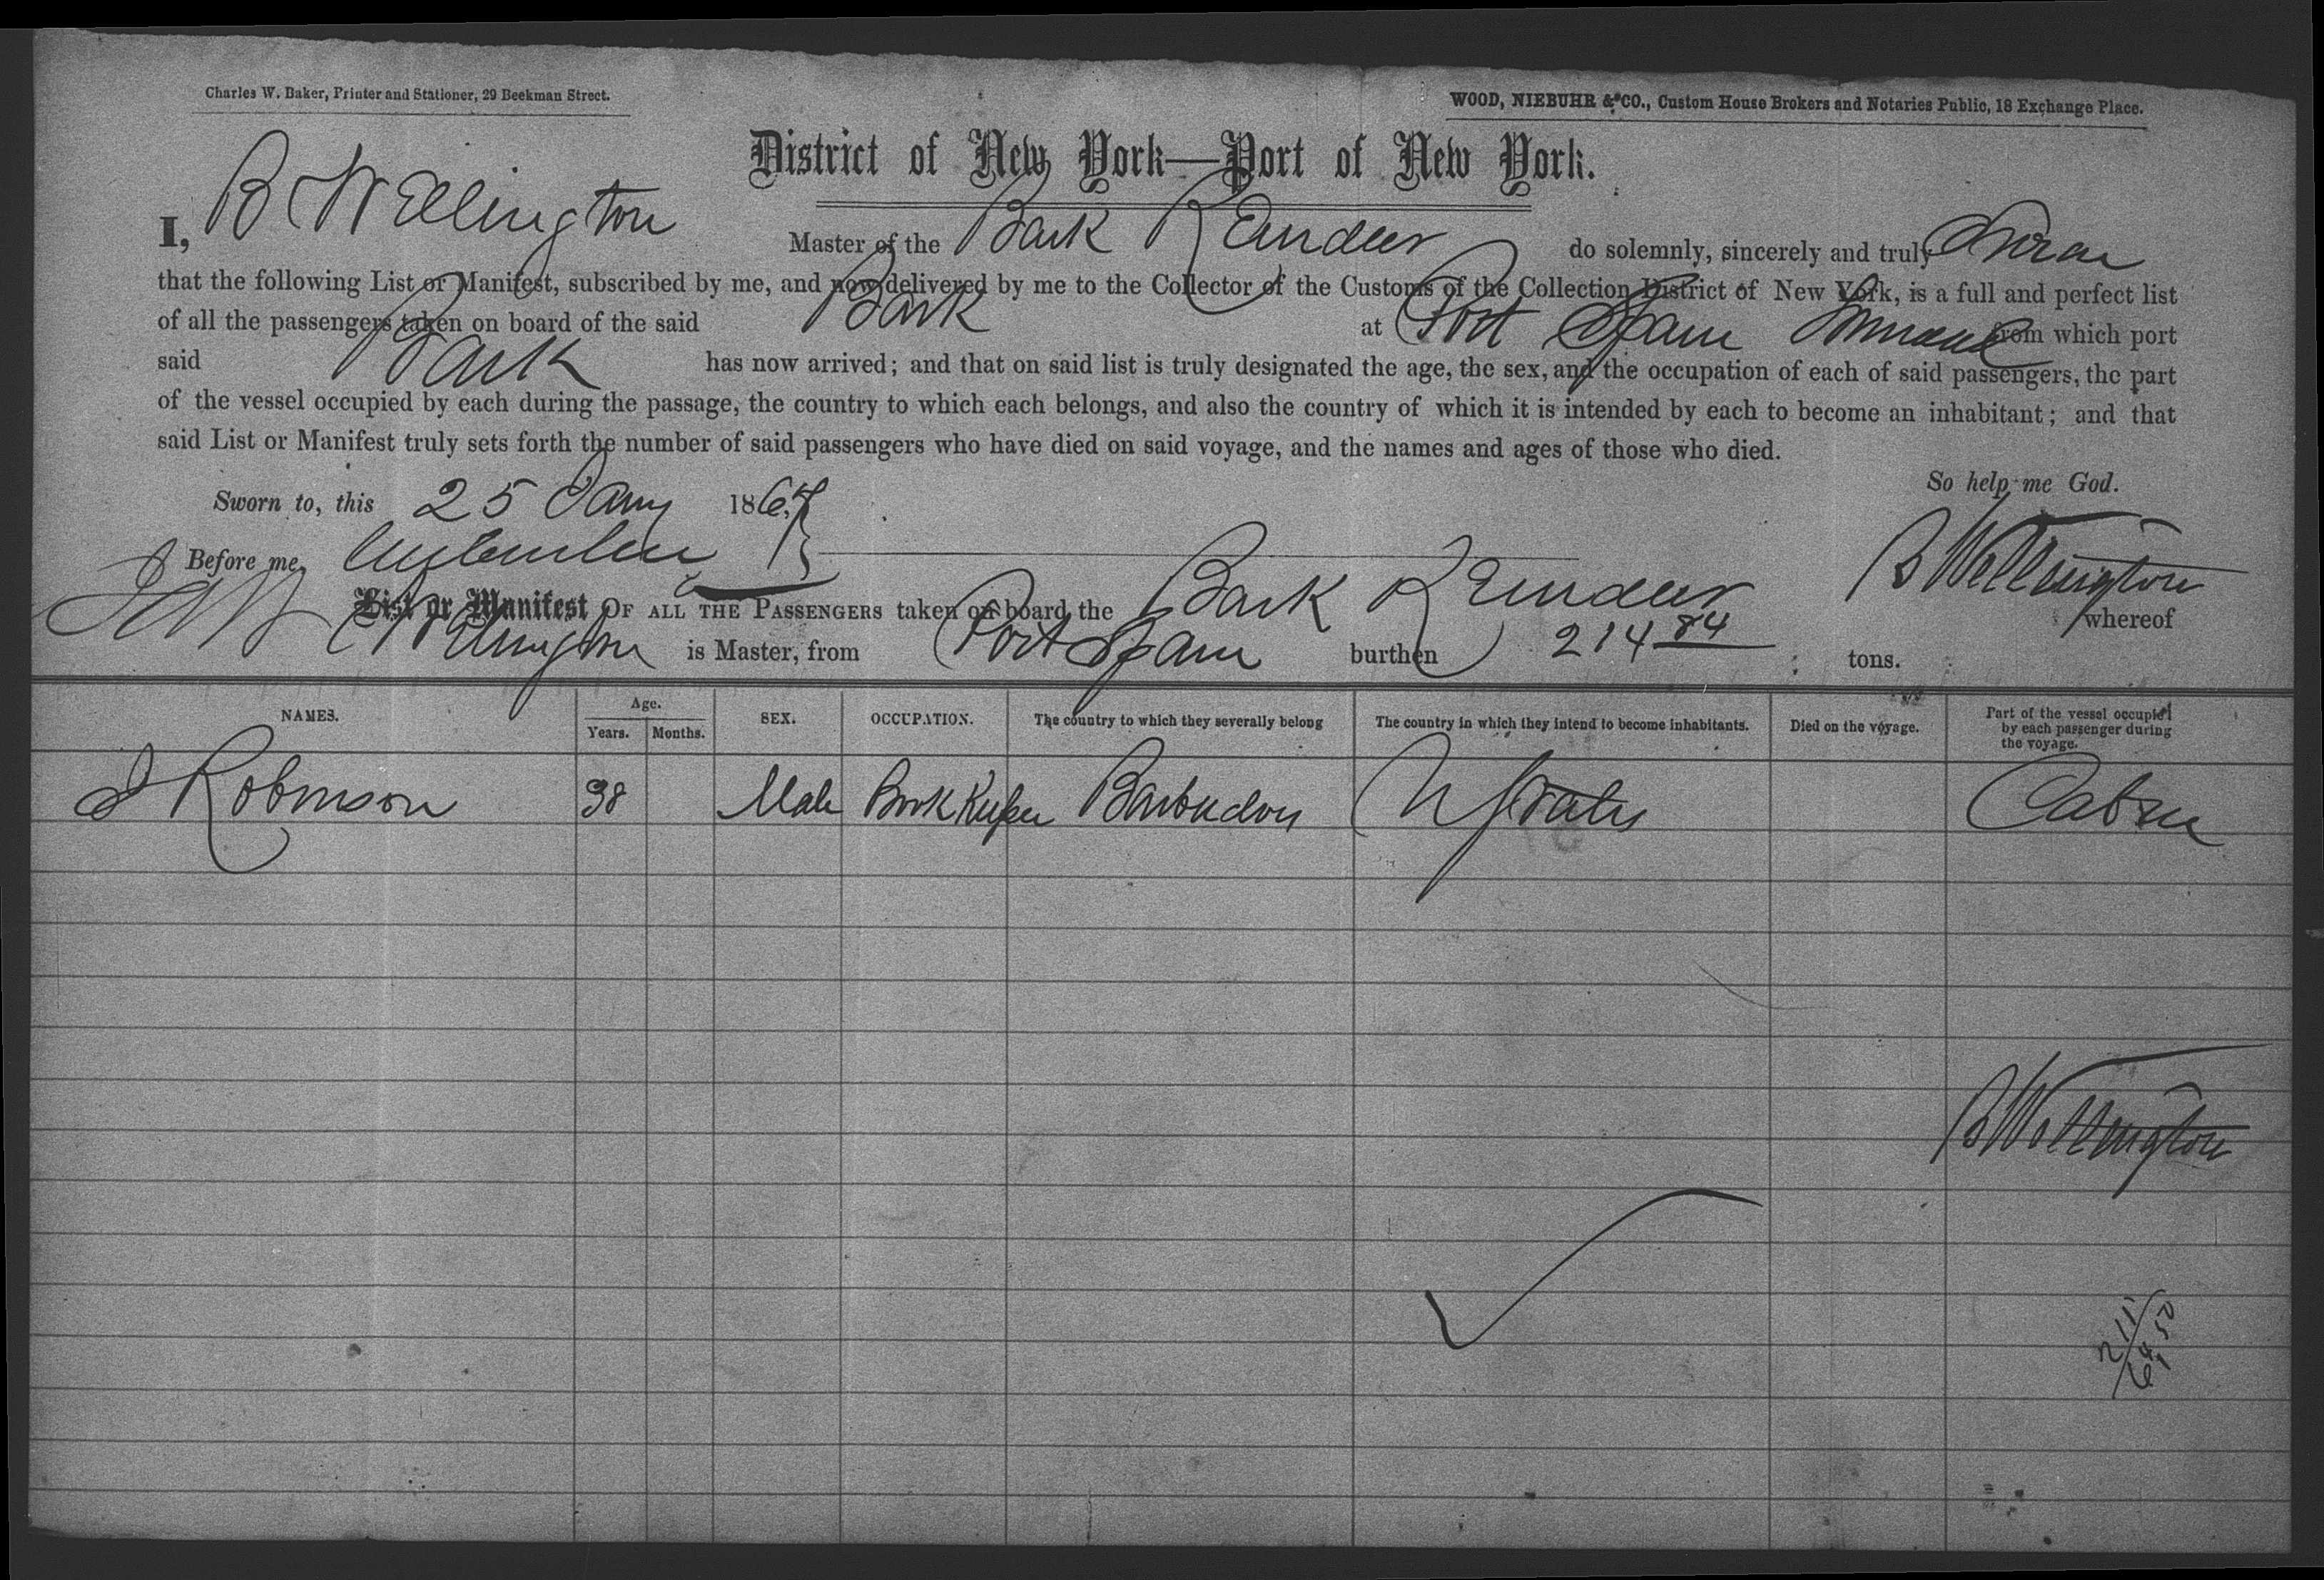 Charles W. Baker, Printer and Stationer, 29 Beekman Street.
WOOD, NIEBUHR & CO., Custom House Brokers and Notaries Public, 18 Exchange Place.
District of New York—Port of New York.
I, B Wellington Master of the Bark Reindeer do solemnly, sincerely and truly Swear
that the following List or Manifest, subscribed by me, and now delivered by me to the Collector of the Customs of the Collection District of New York, is a full and perfect list
of all the passengers taken on board of the said Bark at Port Spain from which port
said Bark has now arrived; and that on said list is truly designated the age, the sex, and the occupation of each of said passengers, the part
of the vessel occupied by each during the passage, the country to which each belongs, and also the country of which it is intended by each to become an inhabitant; and that
said List or Manifest truly sets forth the number of said passengers who have died on said voyage, and the names and ages of those who died.
So help me God.
Sworn to, this 25 Jany 1864
Before me,
B Wellington
List or Manifest OF ALL THE PASSENGERS taken on board the Bark Reindeer whereof
Wellington is Master, from Port Spain burthen 214 84 tons.
NAMES. Age. Years. Months. SEX. OCCUPATION. The country to which they severally belong The country in which they intend to become inhabitants. Died on the voyage. Part of the vessel occupied by each passenger during the voyage.
J Robinson 38 Male Book Keeper Barbadoes U States Cabin
B Wellington